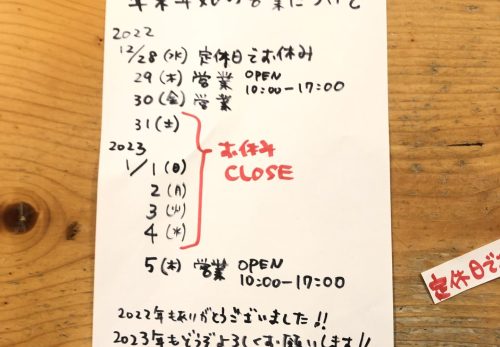 年末年始の営業について
2022
12/28(水) 定休日でお休み
29(木) 営業 OPEN
30(金) 営業 10:00-17:00
31(土)
2023
1/1(日)
お休み
CLOSE
2(月)
3(火)
4(水)
5(木) 営業 OPEN
10:00-17:00
2022年もありがとうございました!!
2023年もどうぞよろしくお願いします!!
定休日で